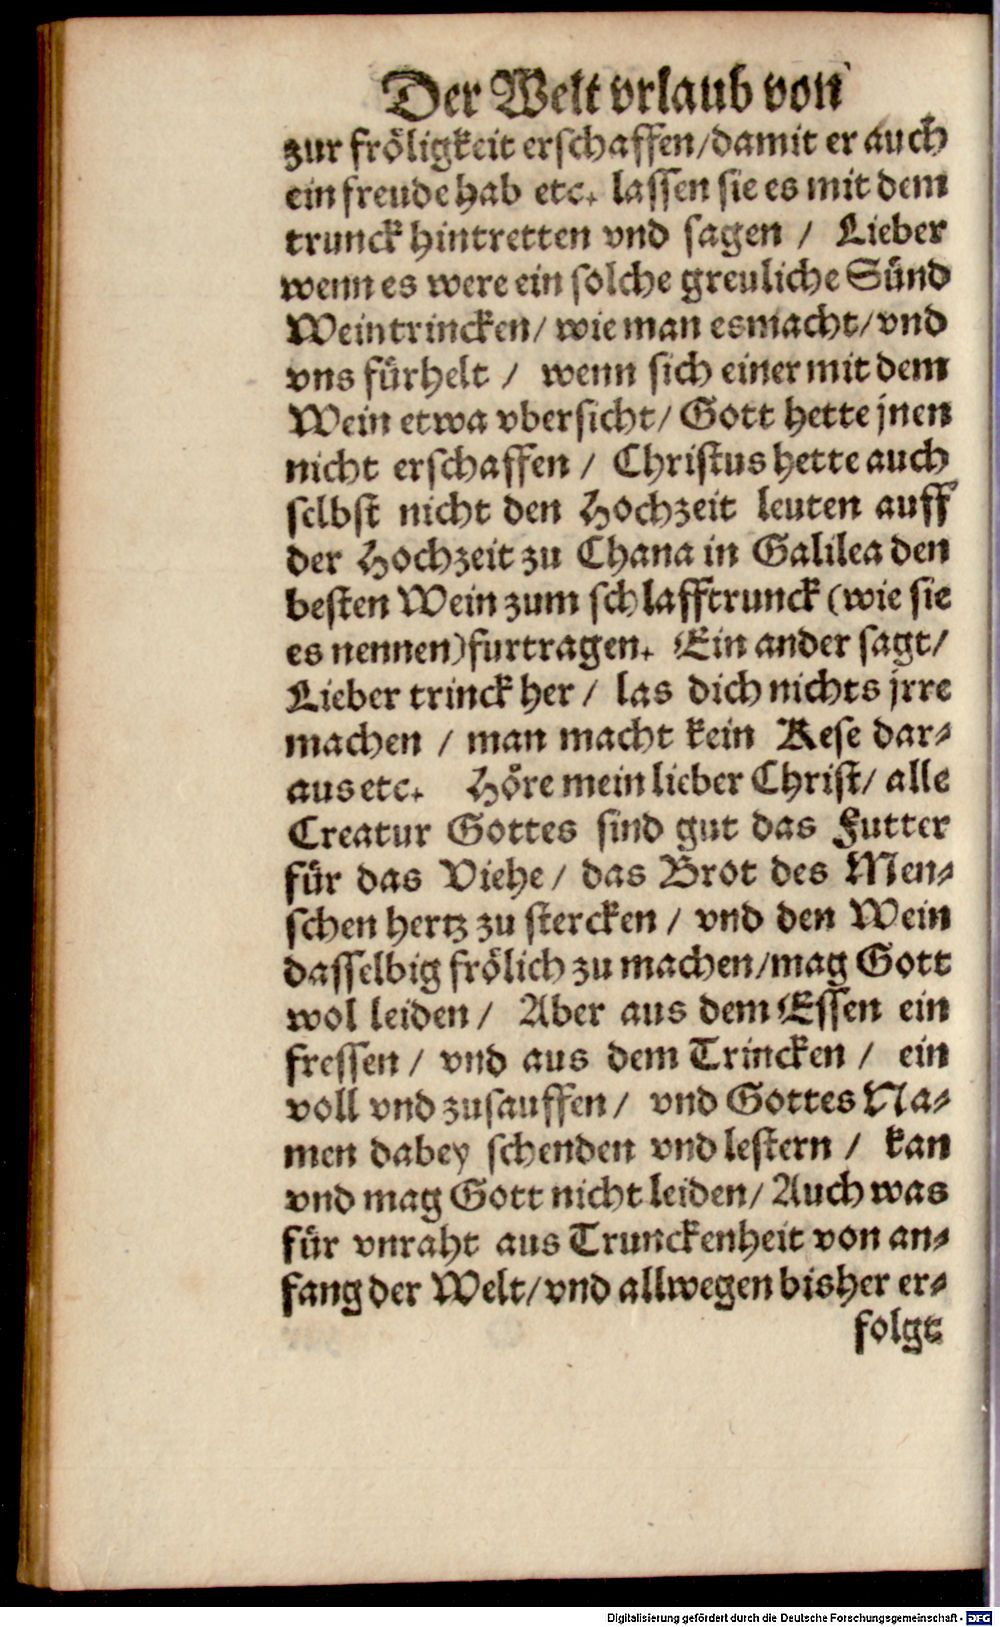 Der Welt vrlaub von
zur fröligkeit erschaffen/damit er auch
ein freude hab etc. lassen sie es mit dem
trunck hintretten vnd sagen / Lieber
wenn es were ein solche greuliche Sünd
Weintrincken/ wie man es macht/ vnd
vns fürhelt / wenn sich einer mit dem
Wein etwa vbersicht/ Gott hette jnen
nicht erschaffen / Christus hette auch
selbst nicht den Hochzeit leuten auff
der Hochzeit zu Chana in Galilea den
besten Wein zum schlafftrunck (wie sie
es nennen) furtragen. Ein ander sagt/
Lieber trinck her / las dich nichts jrre
machen / man macht kein Kese dar-
aus etc. Höre mein lieber Christ/ alle
Creatur Gottes sind gut das Futter
für das Viehe / das Brot des Men-
schen hertz zu stercken / vnd den Wein
dasselbig frölich zu machen/mag Gott
wol leiden / Aber aus dem Essen ein
fressen / vnd aus dem Trincken / ein
voll vnd zusauffen / vnd Gottes Na-
men dabey schenden vnd lestern / kan
vnd mag Gott nicht leiden/ Auch was
für vnraht aus Trunckenheit von an-
fang der Welt/vnd allwegen bisher er-
folgt
Digitalisierung gefördert durch die Deutsche Forschungsgemeinschaft - DFG